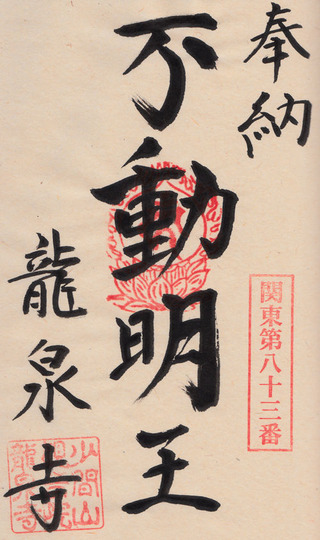 奉納
関東第八十三番
不動明王
龍泉寺
少間山
龍泉寺